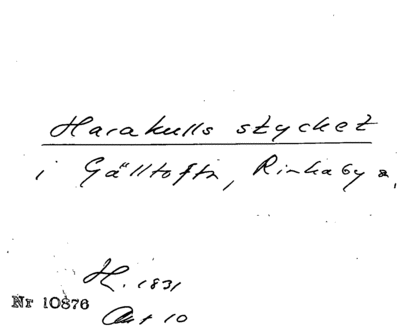 Harakulls stycket
i Gälltofta, Rinkaby s.
H. 1831
Nr 10876
Akt 10